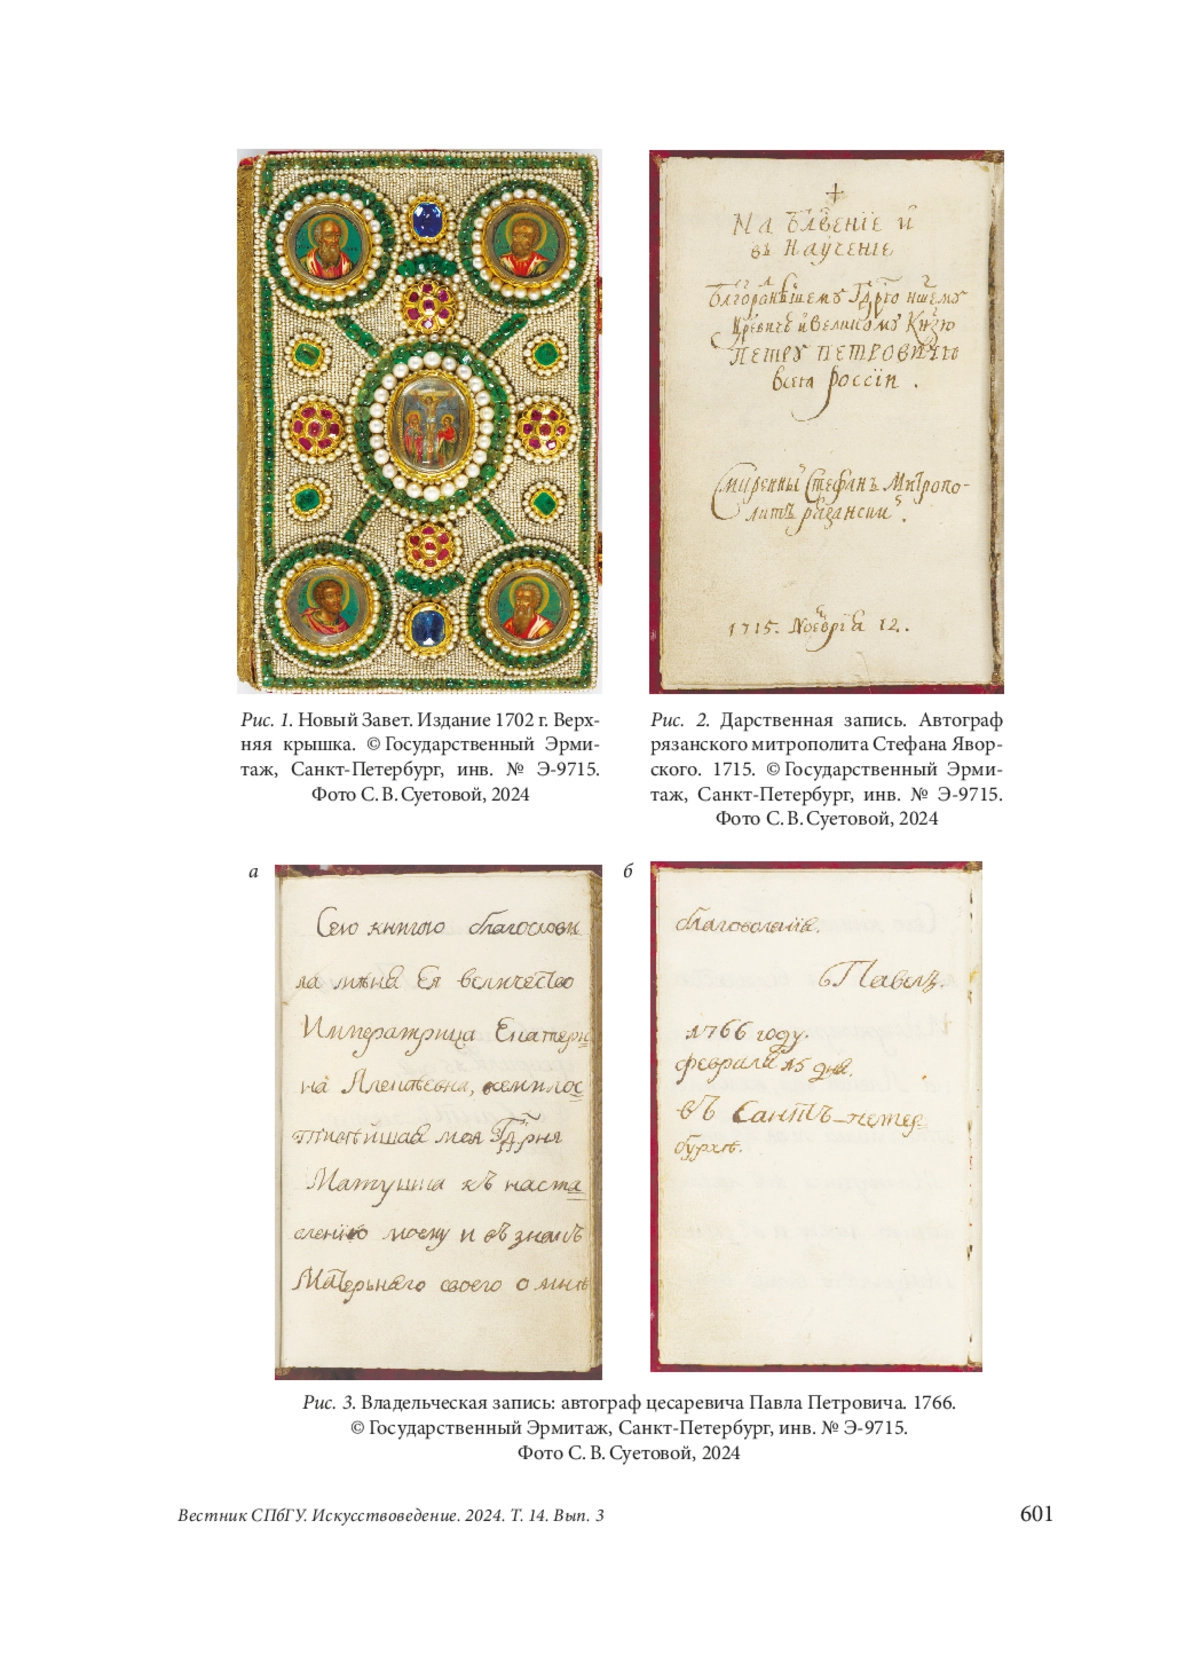 На бл҃вение и҆
въ Наꙋчение
Бл҃городнѣйшемꙋ Гдⷭ҇рю нш҃емꙋ
Цр҃евичꙋ и҆ Великомꙋ Кн҃зю
ПЕТРꙊ ПЕТРОВИЧꙊ
всея россіи .
Смиренный Стефанъ Митропо-
литъ рязански .
1715. Ноеврїа 12.
Рис. 1. Новый Завет. Издание 1702 г. Верх-
няя крышка. © Государственный Эрми-
таж, Санкт-Петербург, инв. № Э-9715.
Фото С. В. Суетовой, 2024
Рис. 2. Дарственная запись. Автограф
рязанского митрополита Стефана Явор-
ского. 1715. © Государственный Эрми-
таж, Санкт-Петербург, инв. № Э-9715.
Фото С. В. Суетовой, 2024
а
Сею книгою благослови
ла мѣня Ея величество
Императрица Екатери
на Алеѯѣевна, всемилос
тивѣйшая моя Гдⷭ҇рня
Матушка къ наста
вленїю моему и въ знакъ
Матерьняго своего о мнѣ
б
благоволенїя.
Павелъ.
1766 году.
февраля 15 дня.
въ Санктъ-петер
бурхѣ.
Рис. 3. Владельческая запись: автограф цесаревича Павла Петровича. 1766.
© Государственный Эрмитаж, Санкт-Петербург, инв. № Э-9715.
Фото С. В. Суетовой, 2024
Вестник СПбГУ. Искусствоведение. 2024. Т. 14. Вып. 3
601